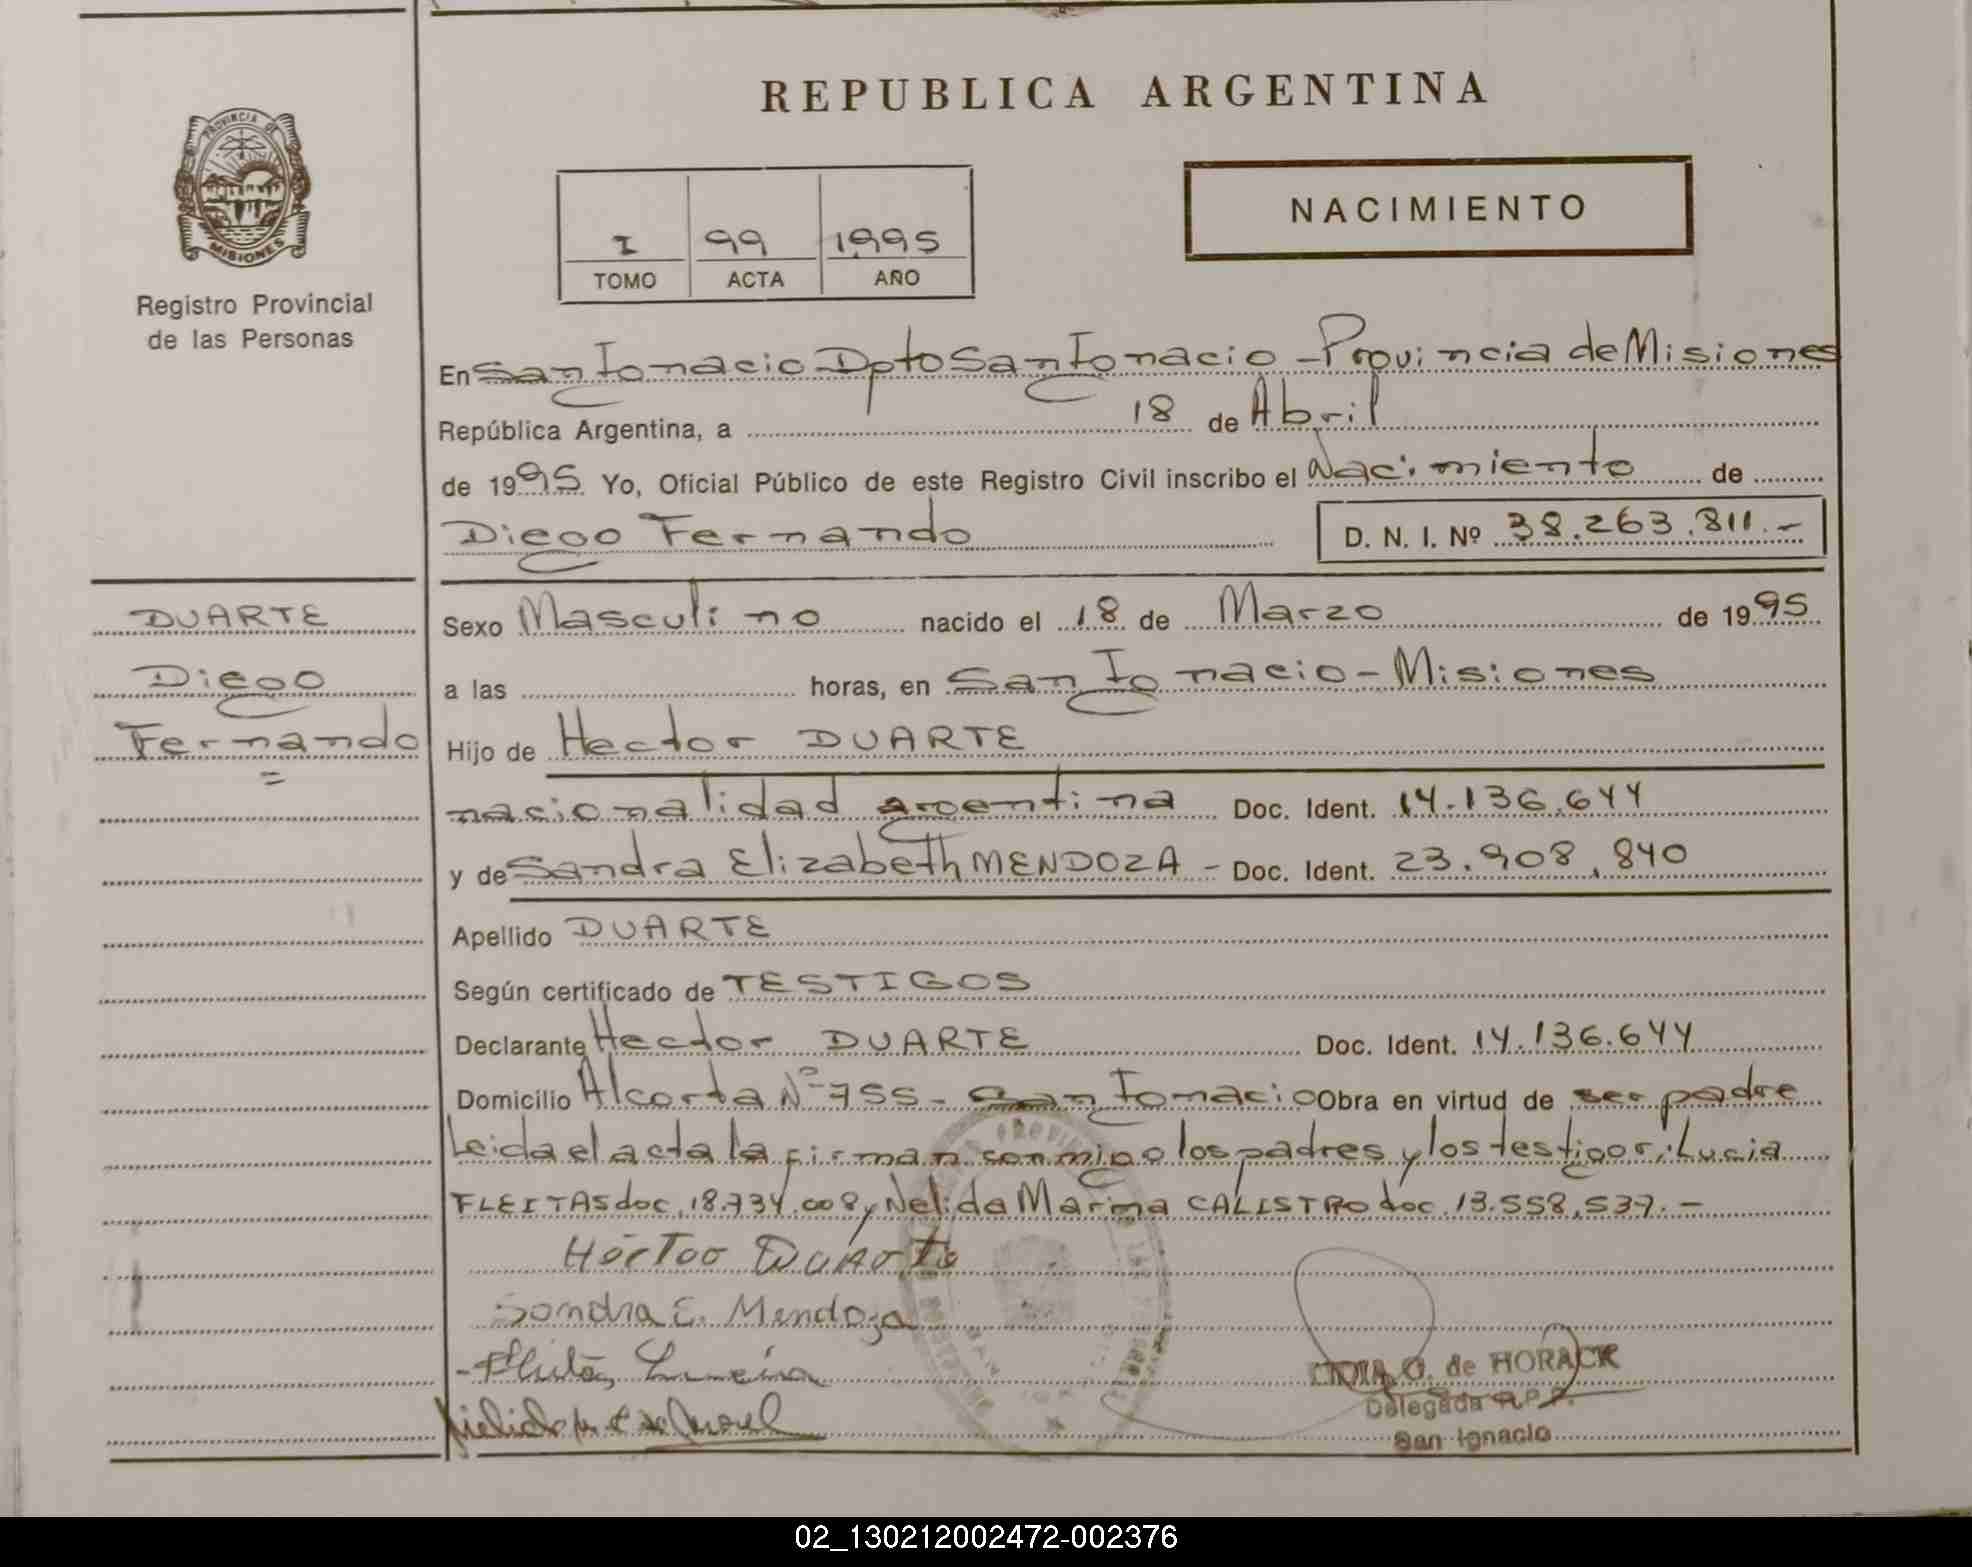 REPUBLICA ARGENTINA
PROVINCIA DE
MISIONES
Registro Provincial
de las Personas
NACIMIENTO
I 99 1995
TOMO ACTA AÑO
En San Ignacio Dpto San Ignacio - Provincia de Misiones
República Argentina, a 18 de Abril
de 1995 Yo, Oficial Público de este Registro Civil inscribo el Nacimiento de
Diego Fernando
D. N. I. Nº 38.263.811.-
DUARTE
Diego
Fernando
=
Sexo Masculino nacido el 18 de Marzo de 1995
a las horas, en San Ignacio - Misiones
Hijo de Hector DUARTE
nacionalidad argentina Doc. Ident. 14.136.644
y de Sandra Elizabeth MENDOZA - Doc. Ident. 23.908.840
Apellido DUARTE
Según certificado de TESTIGOS
Declarante Hector DUARTE Doc. Ident. 14.136.644
Domicilio Alcorta Nº 755 - San Ignacio Obra en virtud de ser padre
Leida el acta la firman conmigo los padres y los testigos: Lucia
FLEITAS doc. 18.734.008 y Nelida Marina CALISTRO doc. 13.558.537.-
Héctor Duarte
Sandra E. Mendoza
Fleitas, Lucia
G. de HORACK
Delegada R.P.P.
San Ignacio
02_130212002472-002376